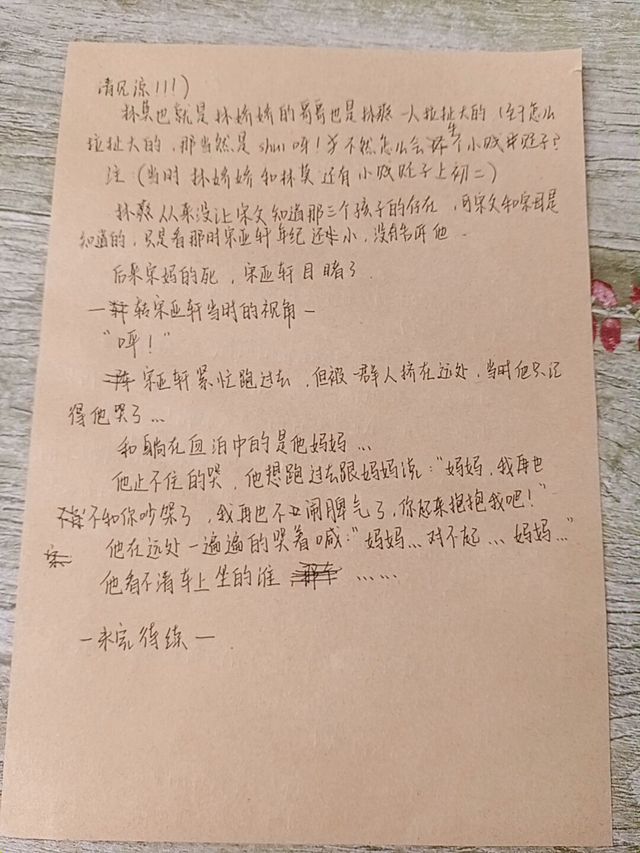 请见谅!!!)
林莫也就是林娇娇的哥哥也是林燕一人拉扯大的(至于怎么
拉扯大的,那当然是shui呀!不然怎么会怀个小贱种崽子?
注:(当时林娇娇和林莫还有小贱崽子上初二)
林燕从来没让宋父知道那三个孩子的存在,可宋父和宋母是
知道的,只是看那时宋亚轩年纪还小,没有告诉他.
后来宋妈的死,宋亚轩目睹了.
—转宋亚轩当时的视角—
“呯!”
宋亚轩紧忙跑过去,但被一群人挤在远处,当时他只记
得他哭了...
和躺在血泊中的是他妈妈...
他止不住的哭,他想跑过去跟妈妈说:“妈妈,我再也
不和你吵架了,我再也不闹脾气了,你起来抱抱我吧!”
他在远处一遍遍的哭着喊:“妈妈...对不起...妈妈...”
他看不清车上坐的谁......
—未完待续—